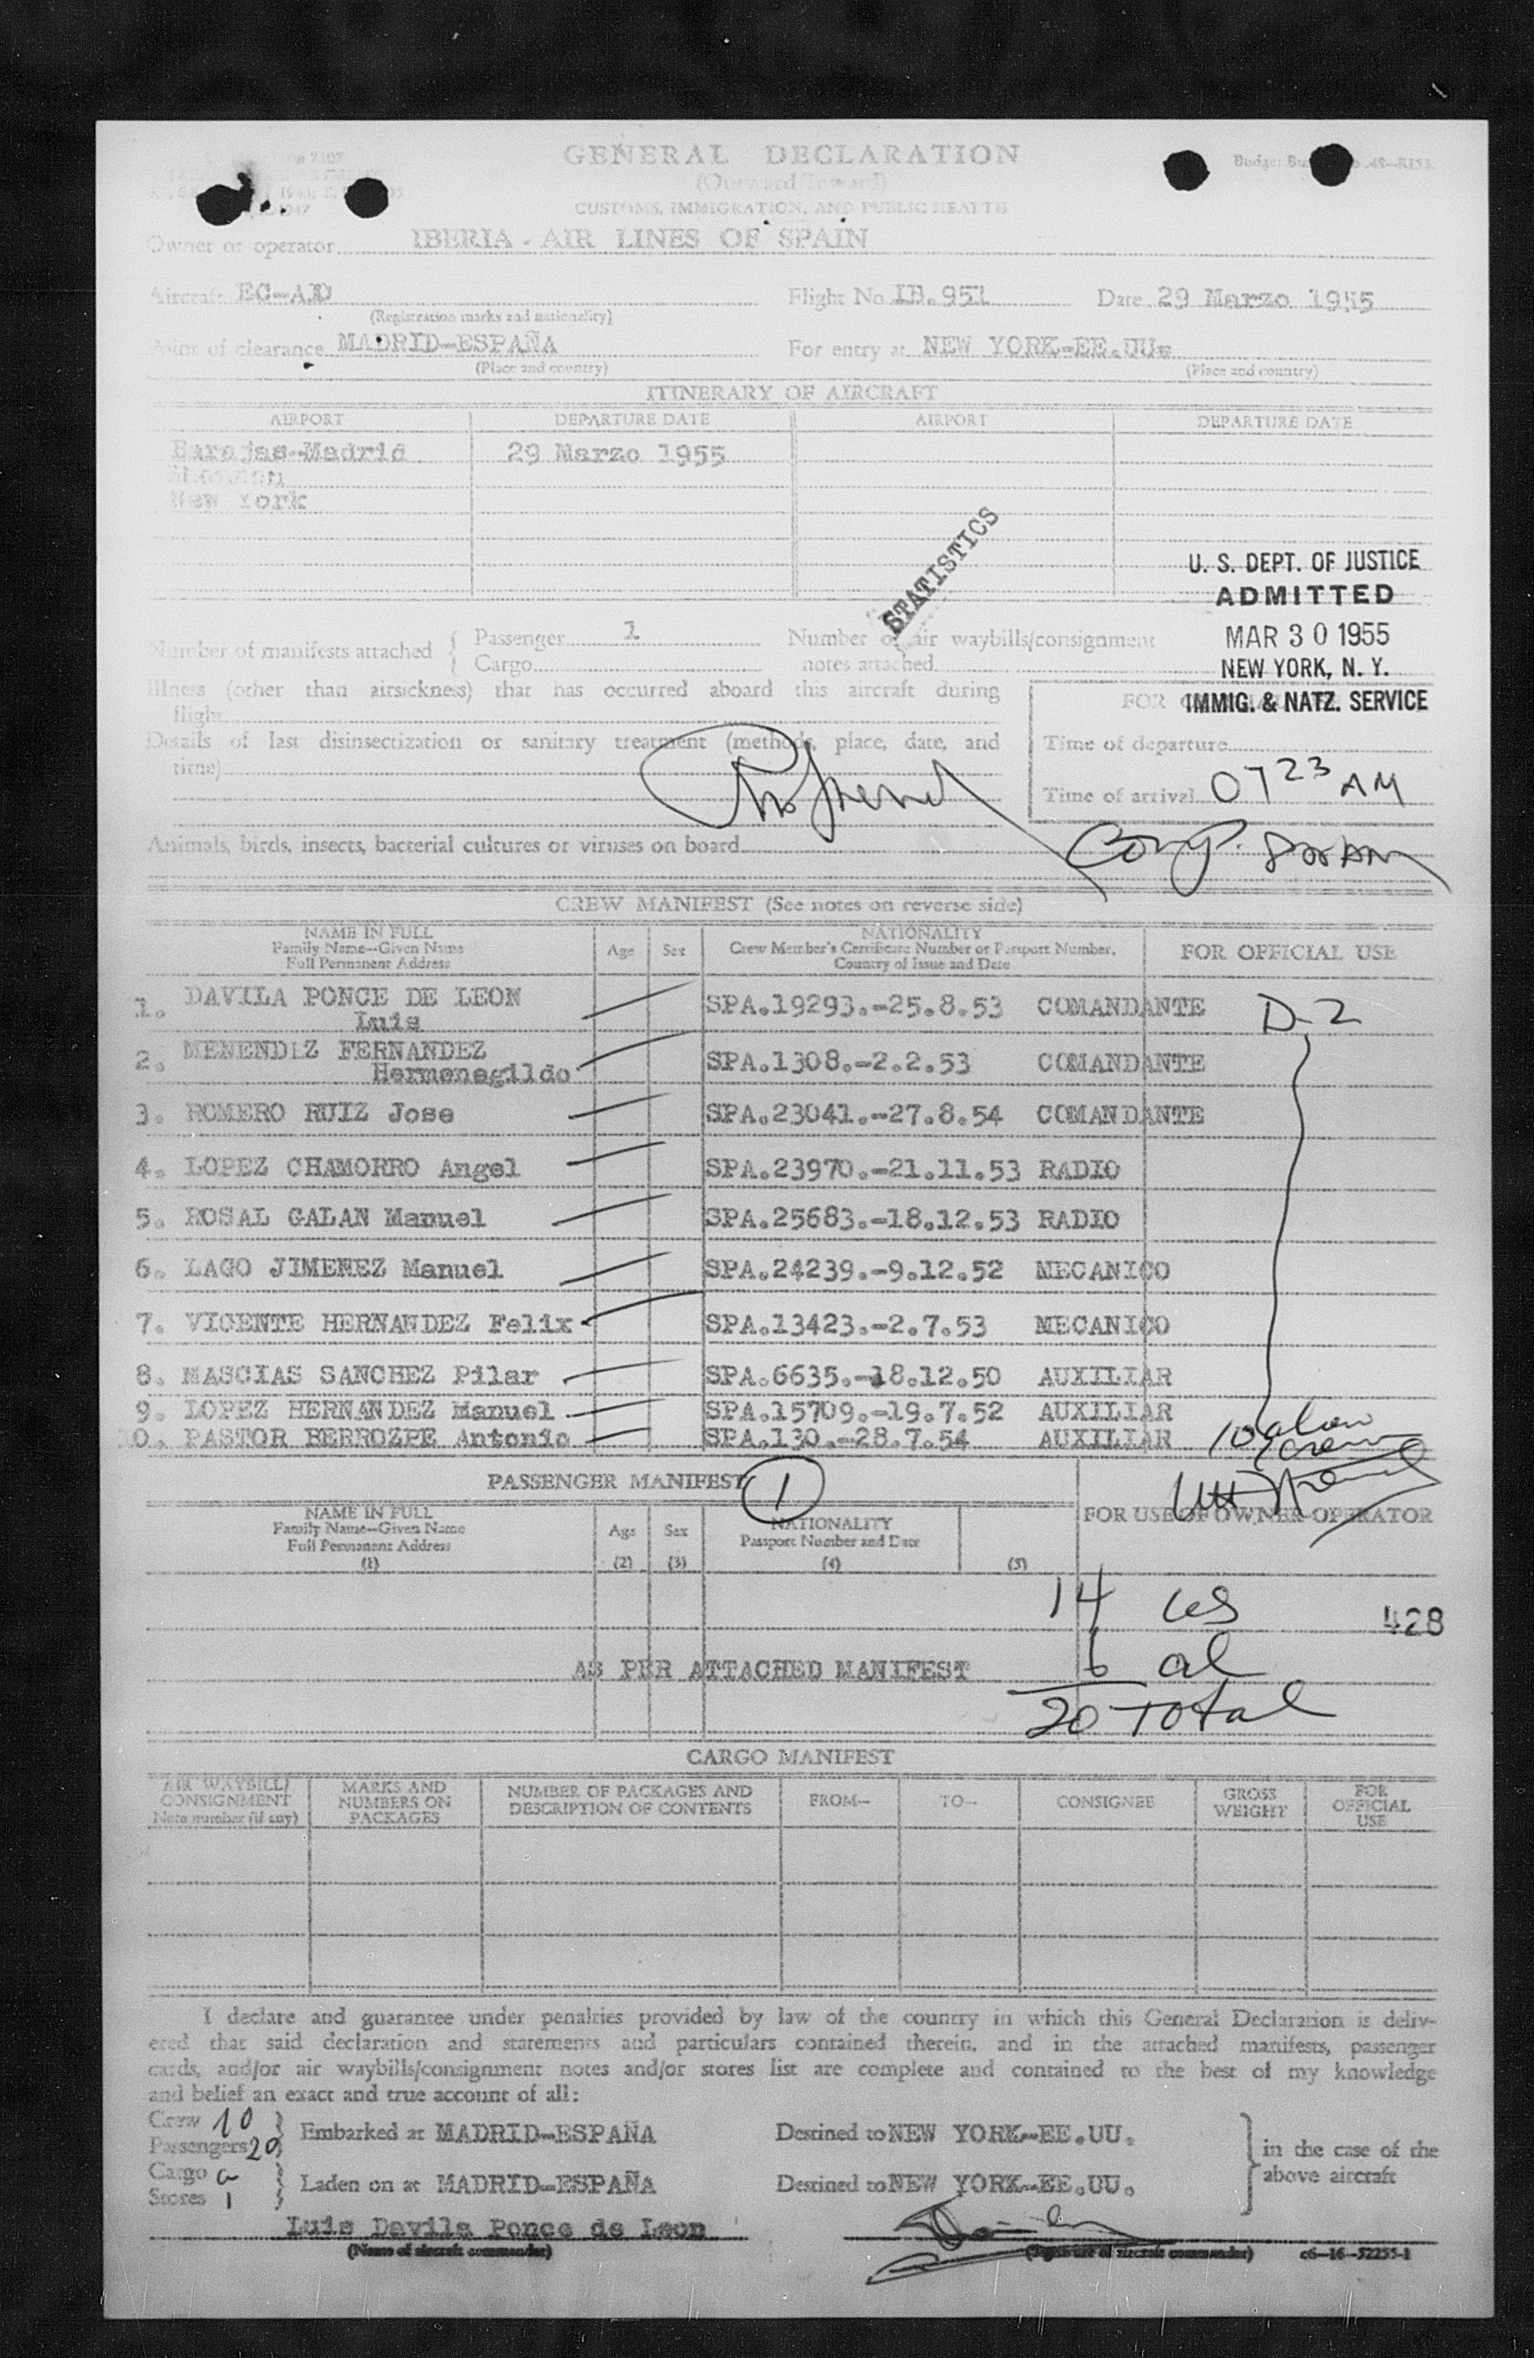 GENERAL DECLARATION
(Outward/Inward)
CUSTOMS, IMMIGRATION, AND PUBLIC HEALTH
Owner or operator IBERIA - AIR LINES OF SPAIN
Aircraft EC-AD Flight No IB.951 Date 29 Marzo 1955
(Registration marks and nationality)
Point of clearance MADRID-ESPAÑA For entry at NEW YORK-EE.UU.
(Place and country) (Place and country)
ITINERARY OF AIRCRAFT
AIRPORT DEPARTURE DATE AIRPORT DEPARTURE DATE
Barajas-Madrid 29 Marzo 1955
New York
STATISTICS
U. S. DEPT. OF JUSTICE
ADMITTED
MAR 30 1955
NEW YORK, N. Y.
IMMIG. & NATZ. SERVICE
Number of manifests attached { Passenger 1 Number of air waybills/consignment
Cargo notes attached
Illness (other than airsickness) that has occurred aboard this aircraft during
flight
FOR
Details of last disinsectization or sanitary treatment (method, place, date, and
time)
Time of departure
Time of arrival 0723 AM
Animals, birds, insects, bacterial cultures or viruses on board
CREW MANIFEST (See notes on reverse side)
NAME IN FULL
Family Name—Given Name
Full Permanent Address
Age Sex
NATIONALITY
Crew Member's Certificate Number or Passport Number,
Country of Issue and Date
FOR OFFICIAL USE
1. DAVILA PONCE DE LEON SPA.19293.-25.8.53 COMANDANTE D-2
Luis
2. MENENDEZ FERNANDEZ SPA.1308.-2.2.53 COMANDANTE
Hermenegildo
3. ROMERO RUIZ Jose SPA.23041.-27.8.54 COMANDANTE
4. LOPEZ CHAMORRO Angel SPA.23970.-21.11.53 RADIO
5. ROSAL GALAN Manuel SPA.25683.-18.12.53 RADIO
6. LAGO JIMENEZ Manuel SPA.24239.-9.12.52 MECANICO
7. VICENTE HERNANDEZ Felix SPA.13423.-2.7.53 MECANICO
8. MASCIAS SANCHEZ Pilar SPA.6635.-18.12.50 AUXILIAR
9. LOPEZ HERNANDEZ Manuel SPA.15709.-19.7.52 AUXILIAR
10. PASTOR BERROZPE Antonio SPA.130.-28.7.54 AUXILIAR 10 alien
crew
PASSENGER MANIFEST 1
NAME IN FULL
Family Name—Given Name
Full Permanent Address
(1)
Age
(2)
Sex
(3)
NATIONALITY
Passport Number and Date
(4)
(5)
FOR USE OF OWNER OPERATOR
14 us 428
6 al
AS PER ATTACHED MANIFEST
20 Total
CARGO MANIFEST
AIR WAYBILL/
CONSIGNMENT
Note number (if any)
MARKS AND
NUMBERS ON
PACKAGES
NUMBER OF PACKAGES AND
DESCRIPTION OF CONTENTS
FROM— TO— CONSIGNEE
GROSS
WEIGHT
FOR
OFFICIAL
USE
I declare and guarantee under penalties provided by law of the country in which this General Declaration is deliv-
ered that said declaration and statements and particulars contained therein, and in the attached manifests, passenger
cards, and/or air waybills/consignment notes and/or stores list are complete and contained to the best of my knowledge
and belief an exact and true account of all:
Crew 10
Passengers 20 } Embarked at MADRID-ESPAÑA Destined to NEW YORK-EE.UU.
in the case of the
above aircraft
Cargo
Stores 1 } Laden on at MADRID-ESPAÑA Destined to NEW YORK-EE.UU.
Luis Davila Ponce de Leon
(Name of aircraft commander) (Signature of aircraft commander) c6—16—52255-1